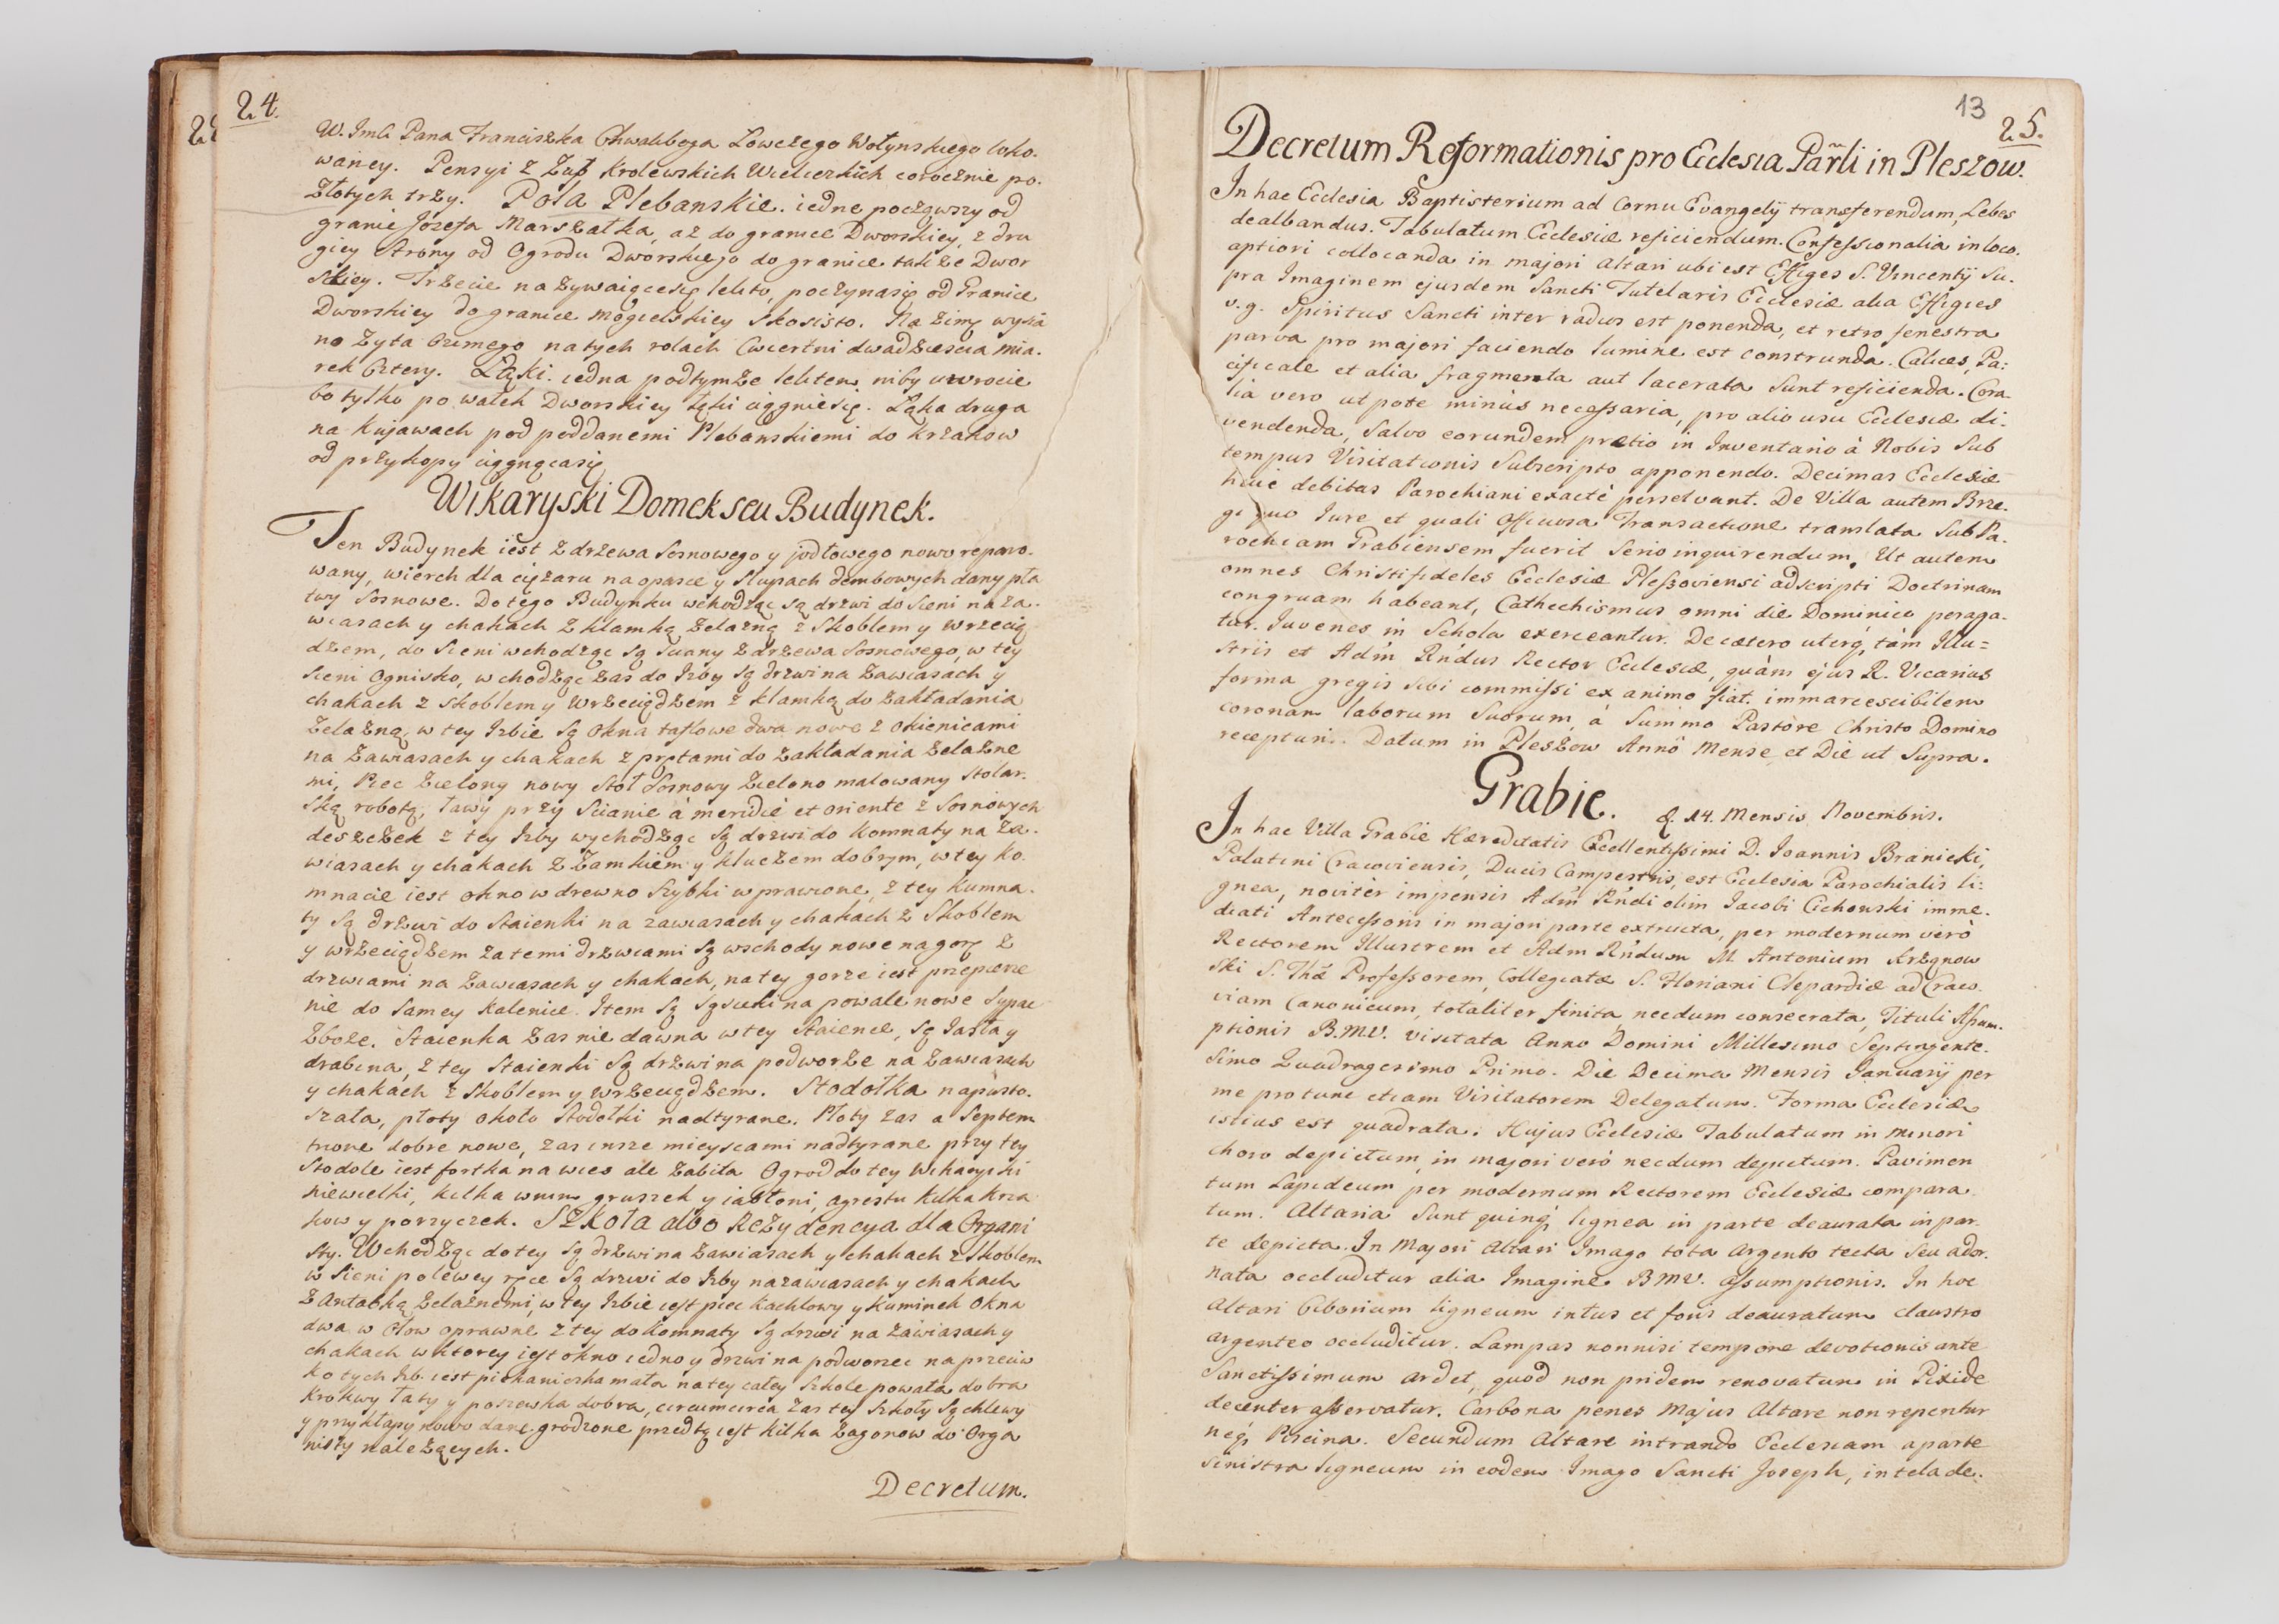 24.
W. Imci Pana Franciszka Chwaliboga Łowczego Wołynskiego loko.
waney. Pensyi z Zup Krolewskich Wielickich corocznie po.
złotych trzy. Pola Plebanskie. iedne począwszy od
granic Jozefa Marszałka, aż do granice Dworskiey, z dru
giey strony od Ogrodu Dworskiego do granice także Dwor
skiey. Trzecie nazywaiącesię lehto, poczynasię od Granice
Dworskiey do granice Mogielskiey skosisto. Na zimę wysia
no Zyta Ozimego na tych rolach Cwiertni dwadziescia mia.
rek Cztery. Łąki. iedna podtymże lehtem niby uwrocie
bo tylko po wałek Dworskiey łąki ciągniesię. Łąka druga
na Kujawach pod poddanemi Plebanskiemi do Krzakow
od przykopy ciągnącasię
Wikaryski Domek seu Budynek.
Ten Budynek iest z drzewa sosnowego y jodłowego nowo reparo.
wany, wierch dla ciężaru na oparce y słupach dembowych dany pła
twy sosnowe. Do tego Budynku wchodząc są drzwi do sieni na za.
wiasach y chakach z klamką żelazną z skoblem y wrzecią
dzem, do sieni wchodząc są sciany z drzewa sosnowego, w tey
sieni ognisko, wchodząc zas do Izby są drzwi na zawiasach y
chakach z skoblem y wrzeciądzem z klamką do zakładania
żelazną, w tey Izbie są okna taflowe dwa nowe z okienicami
na zawiasach y chakach z prętami do zakładania żelazne
mi, Piec zielony nowy stoł sosnowy zielono malowany stolar.
ską robotą, ławy przy scianie à meridie et oriente z sosnowych
deszczek z tey Izby wychodząc są drzwi do komnaty na za.
wiasach y chakach z zamkiem y kluczem dobrym, w tey ko.
mnacie iest okno w drewno szybki wprawione, z tey kumna.
ty są drzwi do staienki na zawiasach y chakach z skoblem
y wrzeciądzem za temi drzwiami są wschody nowe na gorę z
drzwiami na zawiasach y chakach, na tey gorze iest przepierze
nie do samey kalenice. Item są sąsieki na powale nowe sypac
zboże. Staienka zas nie dawna w tey staience, są Jasła y
drabina, z tey staienki są drzwi na podworze na zawiasach
y chakach z skoblem y wrzeciądzem. Stodołka napusto.
szała, płoty około stodołki nadtyrane. Płoty zas a Septem
trione dobre nowe, zas insze mieyscami nadtyrane przy tey
stodole iest fortka na wies ale zabita Ogrod do tey Wikaryski
niewielki, kilka wisien gruszek y iabłoni, agrestu kilka krza
kow y porzyczek. Szkoła albo Rezydencya dla Organi
sty. Wchodząc do tey są drzwi na zawiasach y chakach z skoblem
w sieni po lewey ręce są drzwi do Izby na zawiasach y chakach
z antabką żelaznemi, w tey Izbie iest piec kachlowy y kuminek okna
dwa w ołow oprawne z tey do komnaty są drzwi na zawiasach y
chakach w ktorey iest okno iedno y drzwi na podworzec naprzeciw
ko tych Izb. iest piekarniczka mała na tey całey szkole powała dobra
krokwy łaty y poszewka dobra, circumcirca zas tey szkoły są chlewy
y przykłapy nowo dane grodzone przed tą iest kilka zagonow do Orga
nisty należących.
Decretum.
13
25.
Decretum Reformationis pro Ecclesia Parli in Pleszow.
In hac Ecclesia Baptisterium ad Cornu Evangelij transferendum, Lebes
dealbandus. Tabulatum Ecclesiæ reficiendum. Confessionalia in loco.
aptiori collocanda in majori Altari ubi est Effiges S. Vincentij Su.
pra Imaginem ejusdem Sancti Tutelaris Ecclesiæ alia Effigies
v.g. Spiritus Sancti inter radios est ponenda, et retro fenestra
parva pro majori faciendo lumine est construnda. Calices, Pa:
cificale et alia fragmenta aut lacerata sunt reficiienda. Cora-
lia vero utpote minùs necessaria, pro alio usu Ecclesiæ di.
vendenda, salvo eorundem prætio in Inventario à Nobis sub
tempus Visitationis Subscripto apponendo. Decimas Ecclesiæ
huic debitas Parochiani exactè persolvant. De Villa autem Brze.
gi quo Jure et quali Officiosa Transactione translata sub Pa.
rochiam Grabiensem fuerit serio inquirendum. Ut autem
omnes Christifideles Ecclesiæ Pleszoviensi adscripti Doctrinam
congruam habeant, Cathechismus omni die Dominico peraga-
tur. Juvenes in Schola exerceantur. De cætero uterq, tàm Illu=
stris et Adm Rndus Rector Ecclesiæ, quàm ejus R. Vicarius
forma gregis sibi commissi ex animo fiat. immarcescibilem
coronam laborum suorum, à Summo Pastore Christo Domino
recepturi. Datum in Pleszow Annô Mense, et Die ut Supra.
Grabie. d. 14. Mensis Novembris.
In hac Villa Grabie Hæreditatis Excellentissimi D. Joannis Branicki,
Palatini Cracoviensis, Ducis Campestris, est Ecclesia Parochialis li:
gnea, novitèr impensis Adm Rndi olim Jacobi Cichowski imme.
diati Antecessoris in majori parte extructa, per modernum verò
Rectorem Illustrem et Adm Rndum M. Antonium Krząnow
ski S. Thæ Professorem, Collegiatæ S. Floriani Clepardiæ ad Craco.
viam Canonicum, totaliter finita, necdum consecrata, Tituli Assum.
ptionis B.M.V. visitata Anno Domini Millesimo Septingente.
simo Quadragesimo Primo. Die Decima Mensis Januarij per
me pro tunc etiam Visitatorem Delegatum. Forma Ecclesiæ
istius est quadrata. Hujus Ecclesiæ Tabulatum in minori
choro depictum, in majori verò necdum depictum. Pavimen
tum Lapideum per modernum Rectorem Ecclesiæ compara
tum. Altaria sunt quinq, lignea in parte deaurata in par.
te depicta. In Majori Altari Imago tota argento tecta seu ador.
nata occluditur alia Imagine B.M.V. Assumptionis. In hoc
Altari Ciborium ligneum intus et foris deauratum claustro
argenteo occluditur. Lampas nonnisi tempore devotionis ante
Sanctissimum ardet, quod non pridem renovatum in Pixide
decenter asservatur. Carbona penes Majus Altare non reperitur
neq, Piscina. Secundum Altare intrando Ecclesiam a parte
sinistra ligneum in eodem Imago Sancti Joseph, in tela de.